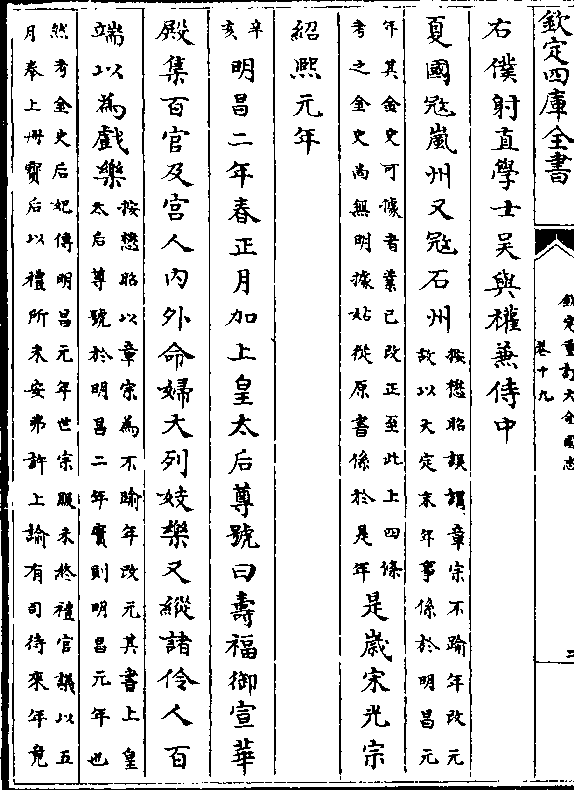 欽定四庫全書
欽定重訂大金國志
卷十九
二
右僕射直學士吳與權兼侍中
夏國冦嵐州又冦石州
按懋昭誤謂章宗不踰年改元
故以大定末年事係於明昌元
年其金史可據者業已改正至此上四條
考之金史尚無明據姑從原書係於是年
是歲宋光宗
紹熙元年
辛亥
明昌二年春正月加上皇太后尊號曰壽福御宣華
殿集百官及宮人內外命婦大列妓樂又縱諸伶人百
端以為戲樂
按懋昭以章宗為不踰年改元其書上皇
太后尊號於明昌二年實則明昌元年也
然考金史后妃傳明昌元年世宗服未終禮官議以五
月奉上冊寶后以禮所未安弗許上諭有司待來年竟